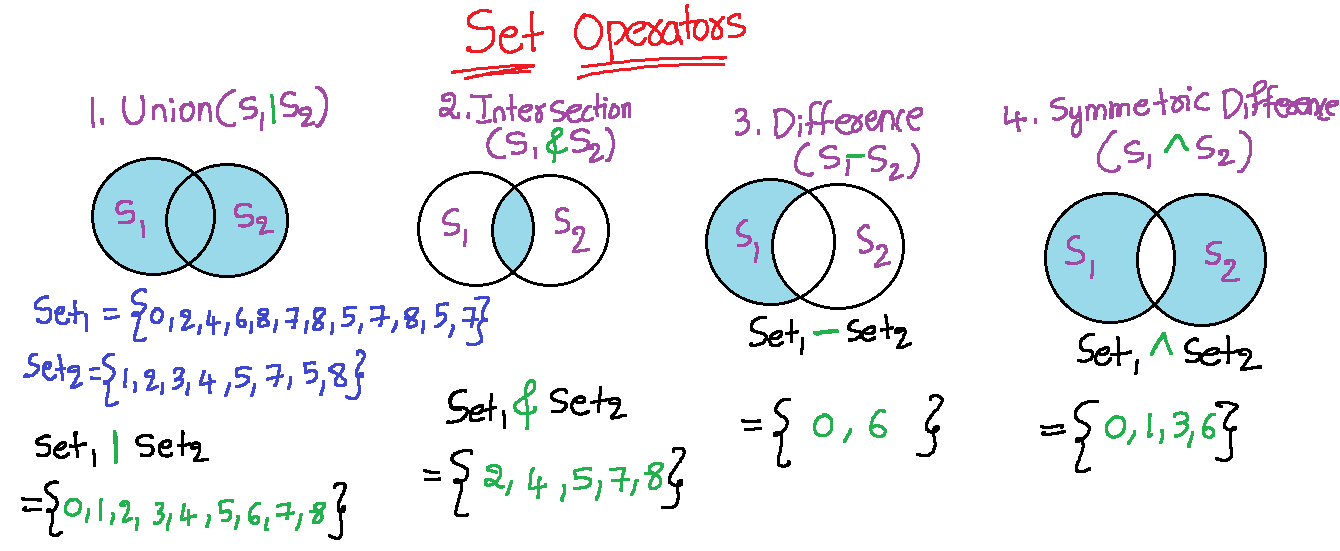 Set Operators
1. Union(S1|S2)
S1 S2
Set1 = {0,2,4,6,8,7,8,5,7,8,5,7}
Set2={1,2,3,4,5,7,5,8}
Set1 | Set2
={0,1,2,3,4,5,6,7,8}
2. Intersection
(S1 & S2)
S1 S2
Set1 & Set2
={2,4,5,7,8}
3. Difference
(S1-S2)
S1 S2
Set1 - Set2
={0,6}
4. Symmetric Difference
(S1 ^ S2)
S1 S2
Set1 ^ Set2
={0,1,3,6}